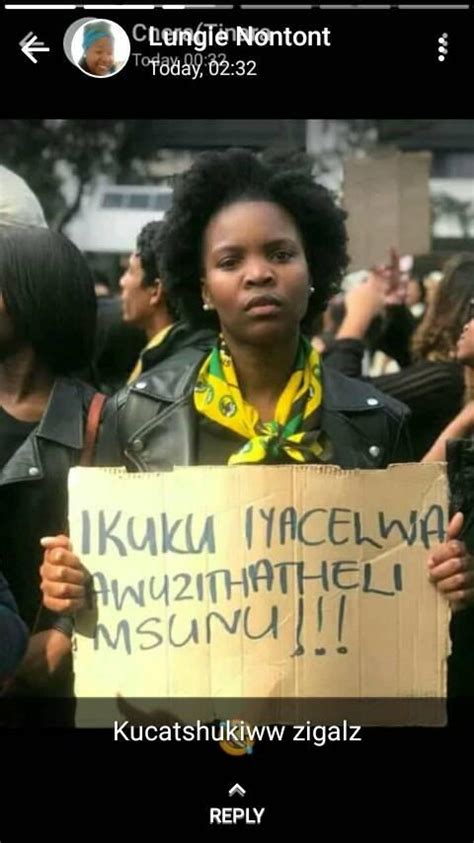 Lungie Nontont
Today, 02:32
IKUKU IYACELWA
AWUZITHATHELI
MSUNU!!!
Kucatshukiww zigalz
REPLY